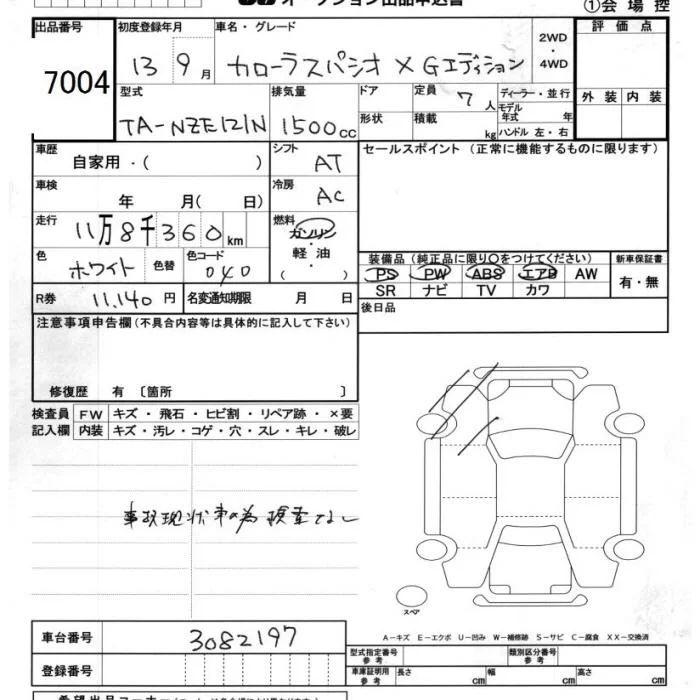 オークション出品申込書 ①会場控
出品番号 初度登録年月 車名・グレード 評価点
7004 13 9月 カローラスパシオ X Gエディション 2WD・4WD
型式 排気量 ドア 定員 7人 ディーラー・並行 外装 内装
TA-NZE121N 1500cc 形状 積載 kg モデル年式 年
ハンドル 左・右
車歴 自家用・( ) シフト AT セールスポイント (正常に機能するものに限ります)
車検 年 月( 日) 冷房 AC
走行 11万8千360km 燃料 ガソリン・軽油( )
色 ホワイト 色替 色コード 040 装備品 (純正品に限り○をつけてください) 新車保証書
PS PW ABS エアB AW 有・無
R券 11,140円 名変通知期限 月 日 SR ナビ TV カワ
注意事項申告欄(不具合内容等は具体的に記入して下さい) 後日品
修復歴 有 〔箇所 〕
検査員 FW キズ・飛石・ヒビ割・リペア跡・×要
記入欄 内装 キズ・汚レ・コゲ・穴・スレ・キレ・破レ
事故現状車の為 検査なし
スペア
車台番号 3082197 A-キズ E-エクボ U-凹み W-補修跡 S-サビ C-腐食 XX-交換済
型式指定番号 参考 類別区分番号 参考
登録番号 車庫証明用 参考 長さ cm 幅 cm 高さ cm
希望出品コーナー